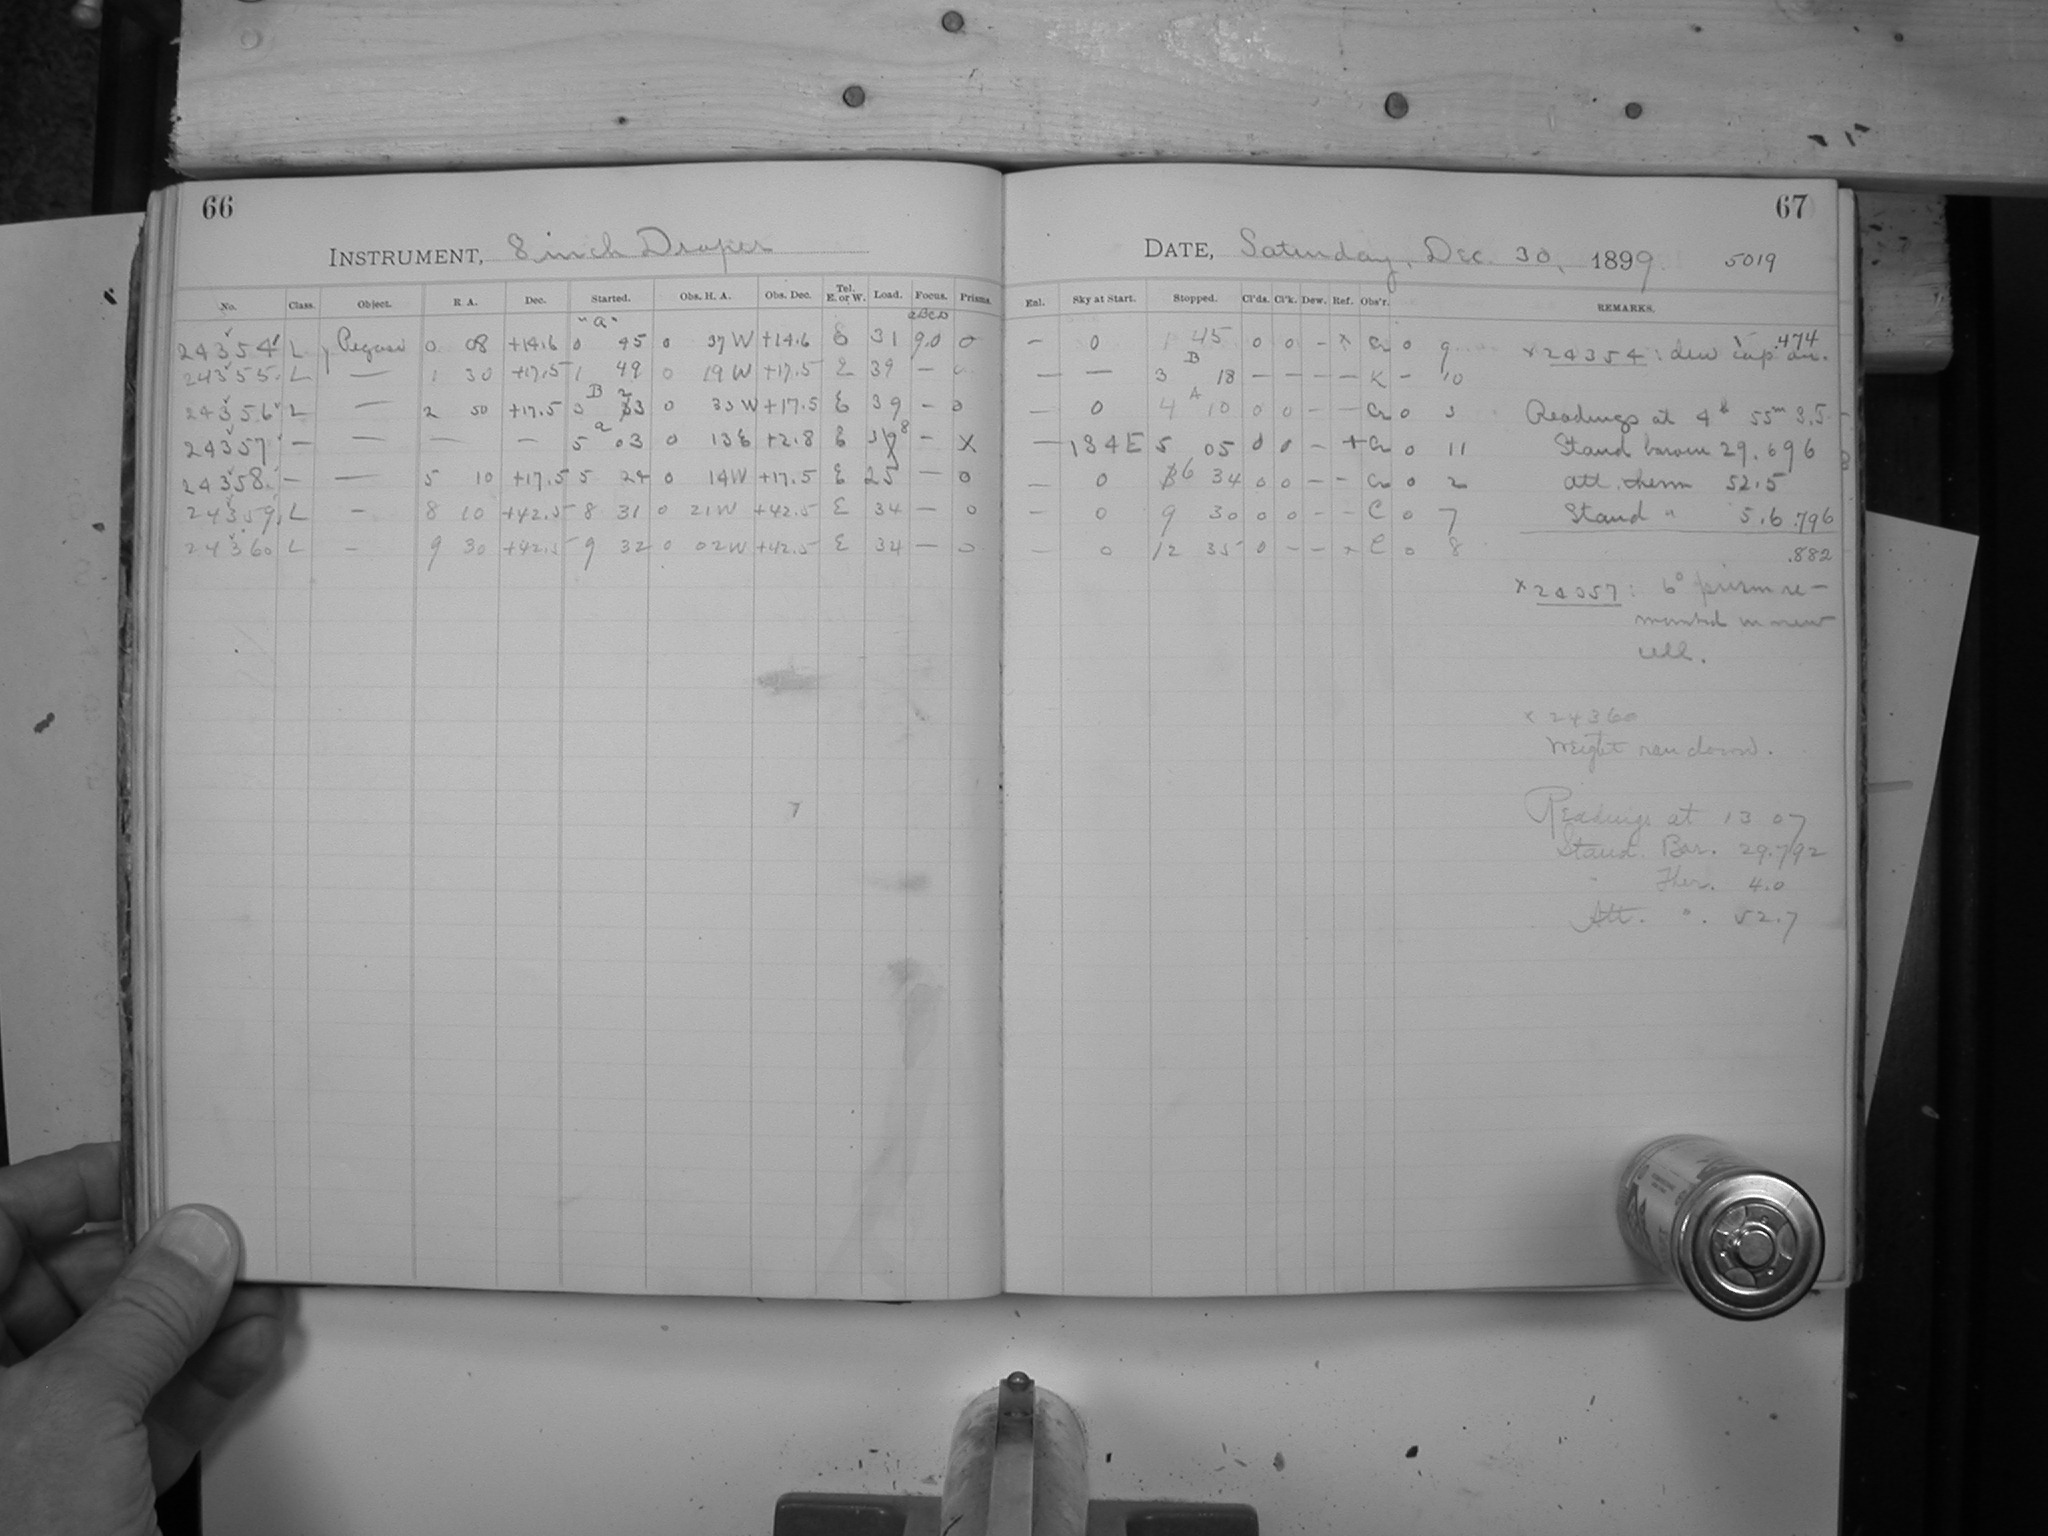 66
INSTRUMENT, 8 inch Draper
No. Class. Object. R. A. Dec. Started. Obs. H. A. Obs. Dec. Tel. E. or W. Load. Focus. Prisms.
"a"
24354 L γ Pegasi 0 08 +14.6 0 45 0 37 W +14.6 E 31 9.0 0
24355 L — 1 30 +17.5 1 49 0 19 W +17.5 E 39 —
B
24356 L — 2 50 +17.5 3 23 0 33 W +17.5 E 39 — 0
a
24357 — — — — 5 03 0 13 E +2.8 E 38 — X
24358 — — 5 10 +17.5 5 24 0 14 W +17.5 E 25 — 0
24359 L — 8 10 +42.5 8 31 0 21 W +42.5 E 34 — 0
24360 L — 9 30 +42.5 9 32 0 02 W +42.5 E 34 — 0
7
67
DATE, Saturday, Dec. 30, 1899 5019
Enl. Sky at Start. Stopped. Cl'ds. Cl'k. Dew. Ref. Obs'r. REMARKS.
— 0 1 45 0 0 — x Cr 0 9
B
— — 3 18 — — — — K — 10
A
— 0 4 10 0 0 — — Cr 0 3
— 134 E 5 05 0 0 — + Cr 0 11
— 0 6 34 0 0 — — Cr 0 2
— 0 9 30 0 0 — — C 0 7
— 0 12 35 0 — — x C 0 8
.474
x 24354: dew cap on.
Readings at 4h 55m 3.5
Stand barom 29.696
att. therm 52.5
Stand " 5.6 .796
.882
x 24057: 6° prism re-
mounted in new
cell.
x 24360
Weight ran down.
Readings at 13 07
Stand. Bar. 29.792
" Ther. 4.0
Att. ". 52.7